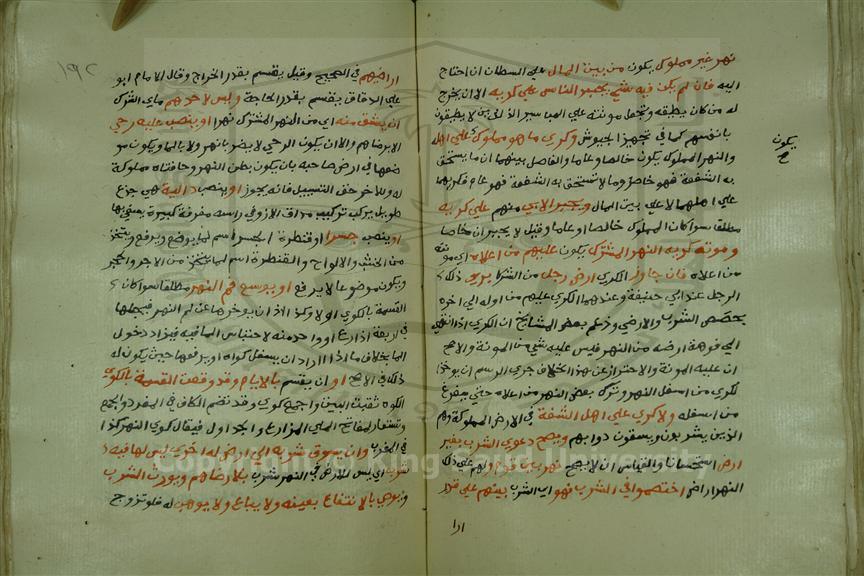 نهر غير مملوك يكون من بين المال علي السطان ان احتاج
اليه فان لم يكن فيه شي يجبر الناس علي كريه الا ان يخرج
له من كان يطيقه وتجعل مونته علي المياسير الذين لا يطيقون
بانفسهم كما في تجهيز الجيوش وكري ما هو مملوك علي اهله
والنهر المملوك يكون خالصا وعاما والفاصل بينهما ان ما يستحق
به الشفعة فهو خاص وما لا تستحق به الشفعة فهو عام فكريهما
علي اهلهما لا علي بين المال ويجبر الابي منهم علي كريه
مطلقا سوا كان المملوك خالصا او عاما وقيل لا يجبر ان خاصا
ومونة كريه النهر المشترك يكون عليهم من اعلاه اي مونته
من اعلاه فان جاوز الكري ارض رجل من الشركا بري ذلك
الرجل عند ابي حنيفة وعندهما الكري عليهم من اوله الي اخره
بحصص الشرب والارضي وزعم بعض المشايخ ان الكري اذا انتهي
الي فوهة ارضه من النهر فليس عليه شي من المونة والاصح
ان عليه المونة والاحتراز عن هذا الخلاف جري الرسم ان يوخذ
لكري من اسفل النهر وترك بعض النهر من اعلاه حتي يفرغ
من اسفله ولا كري علي اهل الشفة في الارض المملوكة وهم
الذين يشربون ويسقون دوابهم ويصح دعوي الشرب بغير
ارض استحسانا والقياس ان لا يصح نهر بين قوم ولهم علي ذلك
النهر اراض اختصموا في الشرب فهو اي الشرب بينهم علي قدر
ارا
يكون
صح
١٩٢
اراضيهم في الصحيح وقيل يقسم بقدر الخراج وقال الامام ابو
علي الدقاق يقسم بقدر الحاجة وليس لاحدهم ماي الشرك
ان يشق منه اي من النهر المشترك نهرا او ينصب عليه رحي
الا برضاهم والا ان يكون الرحي لا يضر بالنهر ولا بالما ويكون مو
ضعها في ارض صاحبه بان يكون بطن النهر وحافتاه مملوكة
له وللاخر حق التسييل فانه يجوز او ينصب دالية هي جزع
طويل يركب تركيب مداق الارز وفي راسه مغرفة كبيرة يسقي بها
او ينصب جسرا او قنطرة الجسر اسم لما يوضع ويرفع ويتخذ
من الخشب والالواح والقنطرة اسم لما يتخذ من الاجر والحجر
ويكون موضوعا لا يرفع او يوسع فم النهر مطلقا سوا كان
القسمة بالكوي او لا وكذا اذا ان يوخرها عن فم النهر فيجعلها
في اربعة اذارع او واحد منه لاحتباس الما فيه فيزاد دخول
الما بخلاف ما اذا اراد ان يسفل كواه او يرفعها حيث يكون له
ذلك في الاصح او ان يقسم بالايام وقد وقعت القسمة بالكوي
الكوه ثقبت البين والجمع كوي وقد تضم الكاف في المفرد والجمع
وتستعار لمفاتح الما الي المزارع والجداول فيقال كوي النهر كذا
في المغرب وان يسوق شربه الي ارض له اخري ليس لها فيه
شرب اي ليس للارض في النهر شرب بلا رضاهم ويورث الشرب
ويوصي بالانتفاع بعينه ولا يباع ولا يوهب له فلو تزوج
Copyright © King Saud University